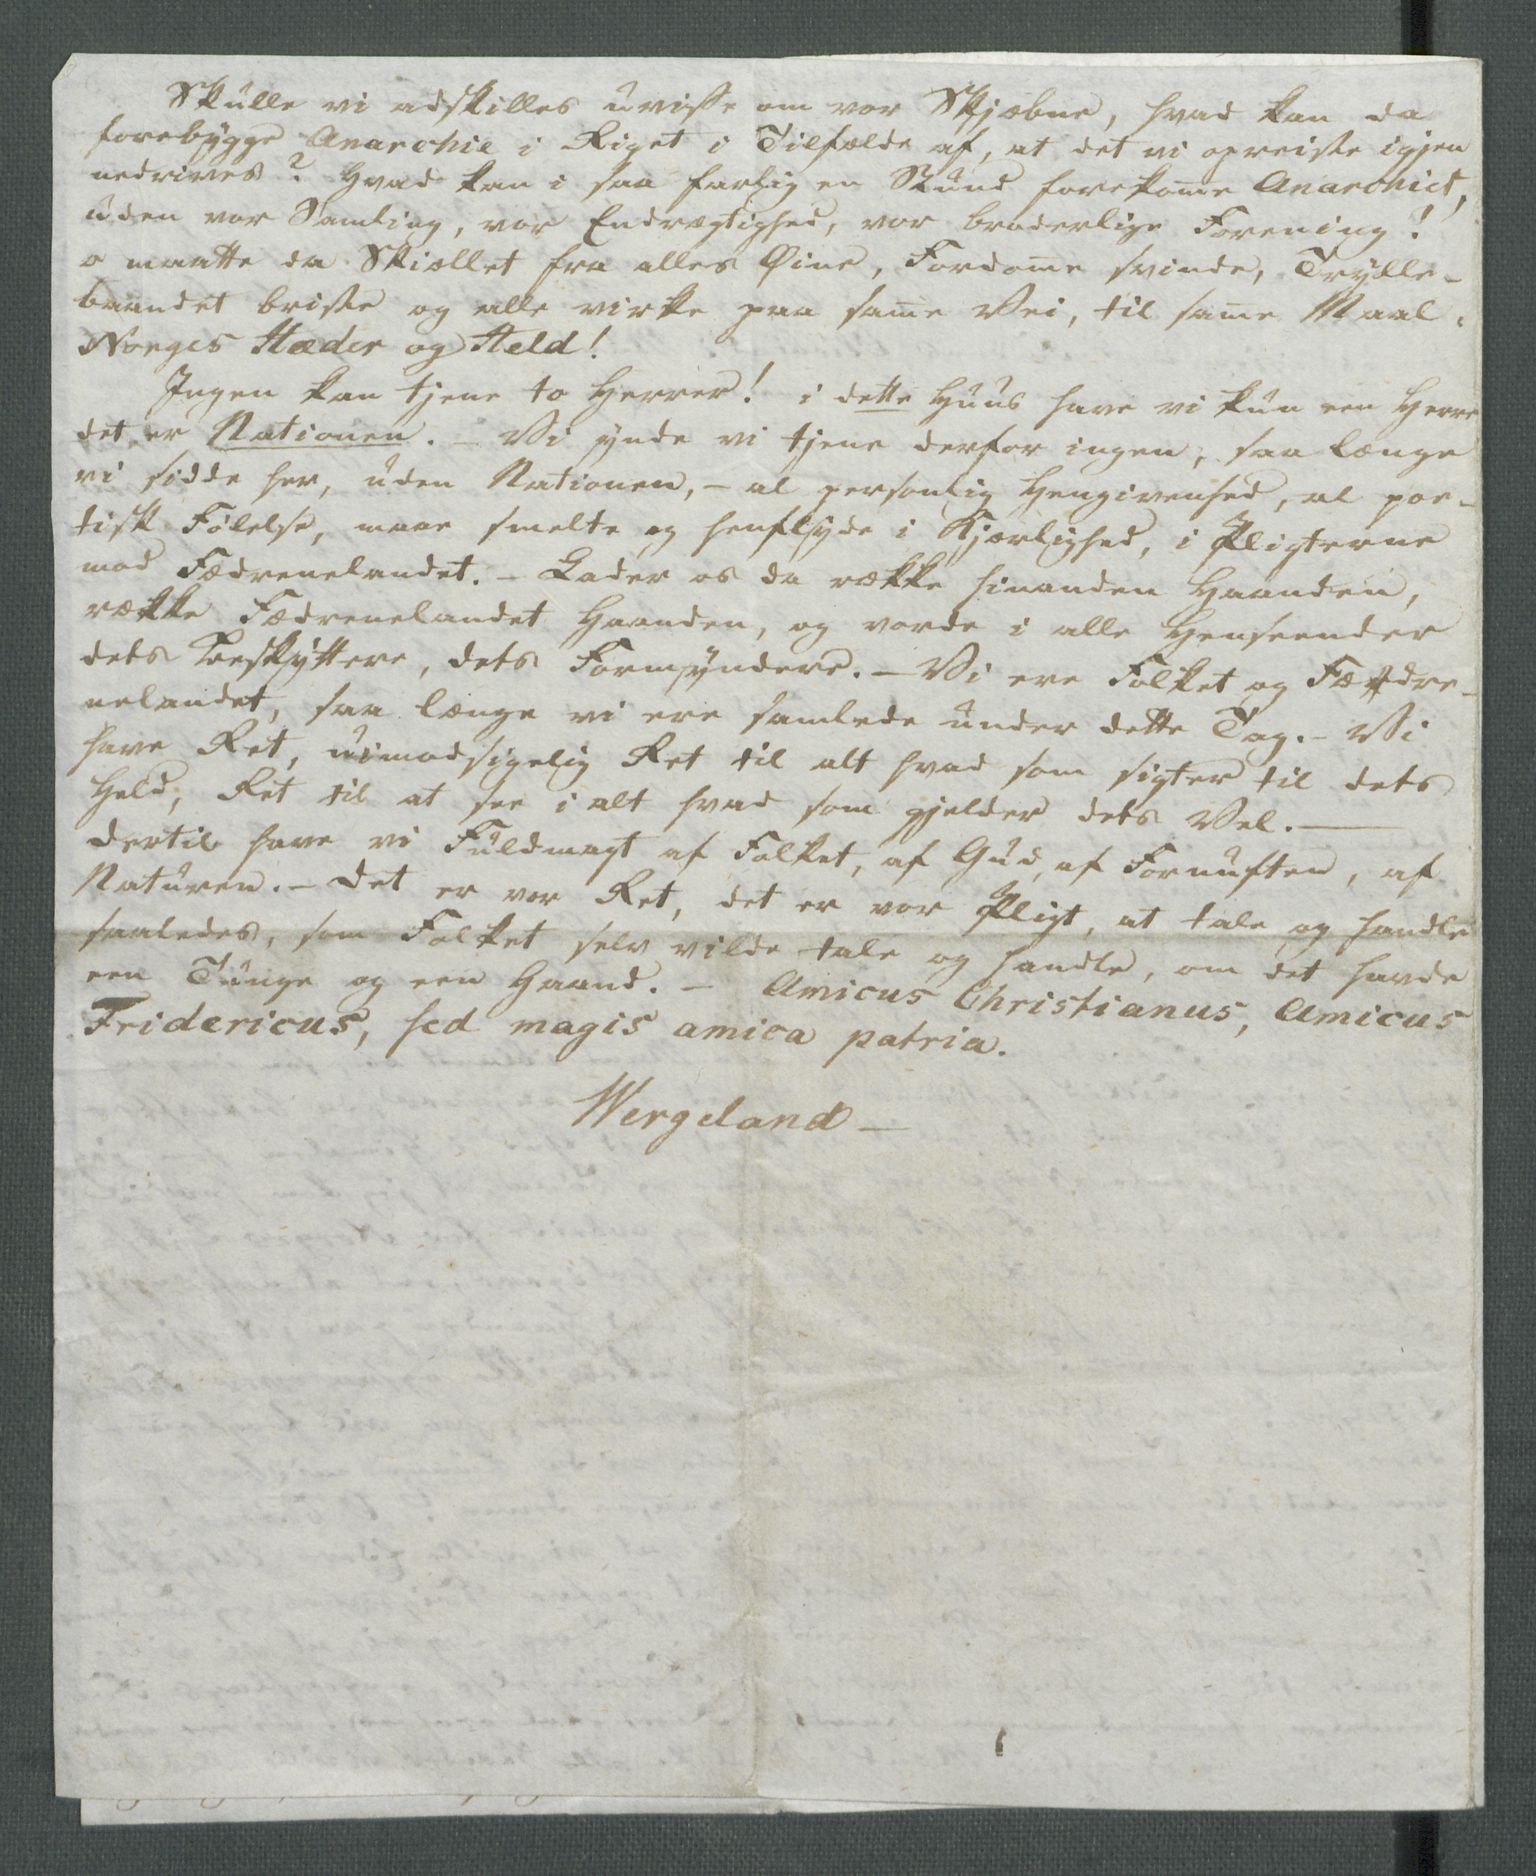 Skulle vi adskilles uvisse om vor Skjæbne, hvad kan da
forebygge Anarchie i Riget i Tilfælde af, at det vi opreiste igjen
nedrives? Hvad kan i saa farlig en Stund forekom̅e Anarchiet,
uden vor Samling, vor Endrægtighed, vor broderlige Forening!
o maatte da Skiællet fra alles Øine, Fordom̅e svinde, Trylle-
baandet briste og alle virke paa sam̅e Vei, til sam̅e Maal,
Norges Hæder og Held!
Ingen kan tjene to Herrer! i dette Huus have vi kun een Herre
det er Nationen. – Vi ynde vi tjene derfor ingen, saa længe
vi sidde her, uden Nationen, – al personlig Hengivenhed, al poe-
tisk Følelse, maae smelte og henflyde i Kjærlighed, i Pligterne
mod Fædrenelandet. – Lader os da række hinanden Haanden,
række Fædrenelandet Haanden, og vorde i alle Henseender
dets Beskyttere, dets Formyndere. – Vi ere Folket og Fædre-
nelandet, saa længe vi ere samlede under dette Tag. – Vi
have Ret, uimodsigelig Ret til alt hvad som sigter til dets
Held, Ret til at see i alt hvad som gjelder dets Vel. —
dertil have vi Fuldmagt af Folket, af Gud, af Fornuften, af
Naturen. – det er vor Ret, det er vor Pligt, at tale og handle
saaledes, som Folket selv vilde tale og handle, om det havde
een Tunge og een Haand. – Amicus Christianus, Amicus
Fridericus, sed magis amica patria.
Wergeland –